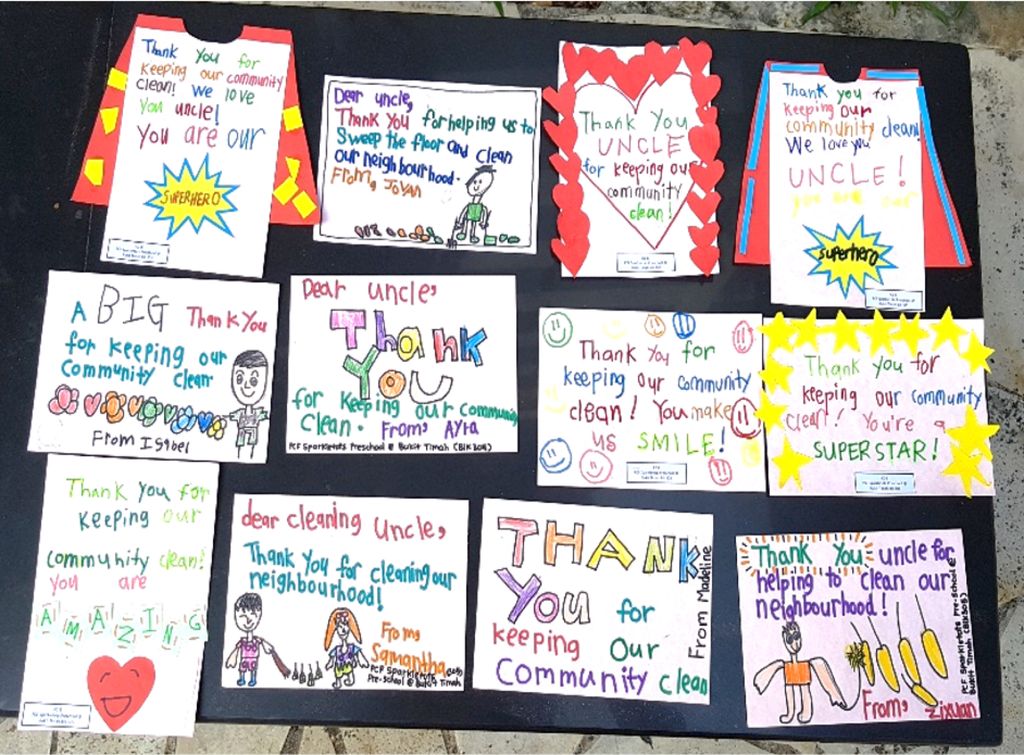 Thank you for
keeping our community
clean! We love
you uncle!
You are our
SUPERHERO
Dear uncle,
Thank You for helping us to
Sweep the floor and clean
our neighbourhood.
From, Jovan
Thank You
UNCLE
for keeping our
community
clean!
Thank you for
keeping our
community clean!
We love you
UNCLE!
you are our
superhero
A BIG Thank You
for keeping our
Community clean
From Isabel
Dear uncle,
Thank
You
for keeping our Community
Clean. From, Ayra
PCF Sparkletots Preschool @ Bukit Timah (Blk 308)
Thank You for
keeping our community
clean! You make
us SMILE!
Thank you for
keeping our community
clean! You're a
SUPERSTAR!
Thank you for
keeping our
community clean!
you are
AMAZING
dear cleaning uncle,
Thank You for cleaning our
neighbourhood!
From,
Samantha
PCF Sparkletots
Pre-school @ Bukit Timah
THANK
YOU for
keeping Our
Community clean
From Madeline
Thank You uncle for
helping to clean our
neighbourhood!
From, Zixuan
PCF Sparkletots Pre-school @
Bukit Timah (Blk 308)